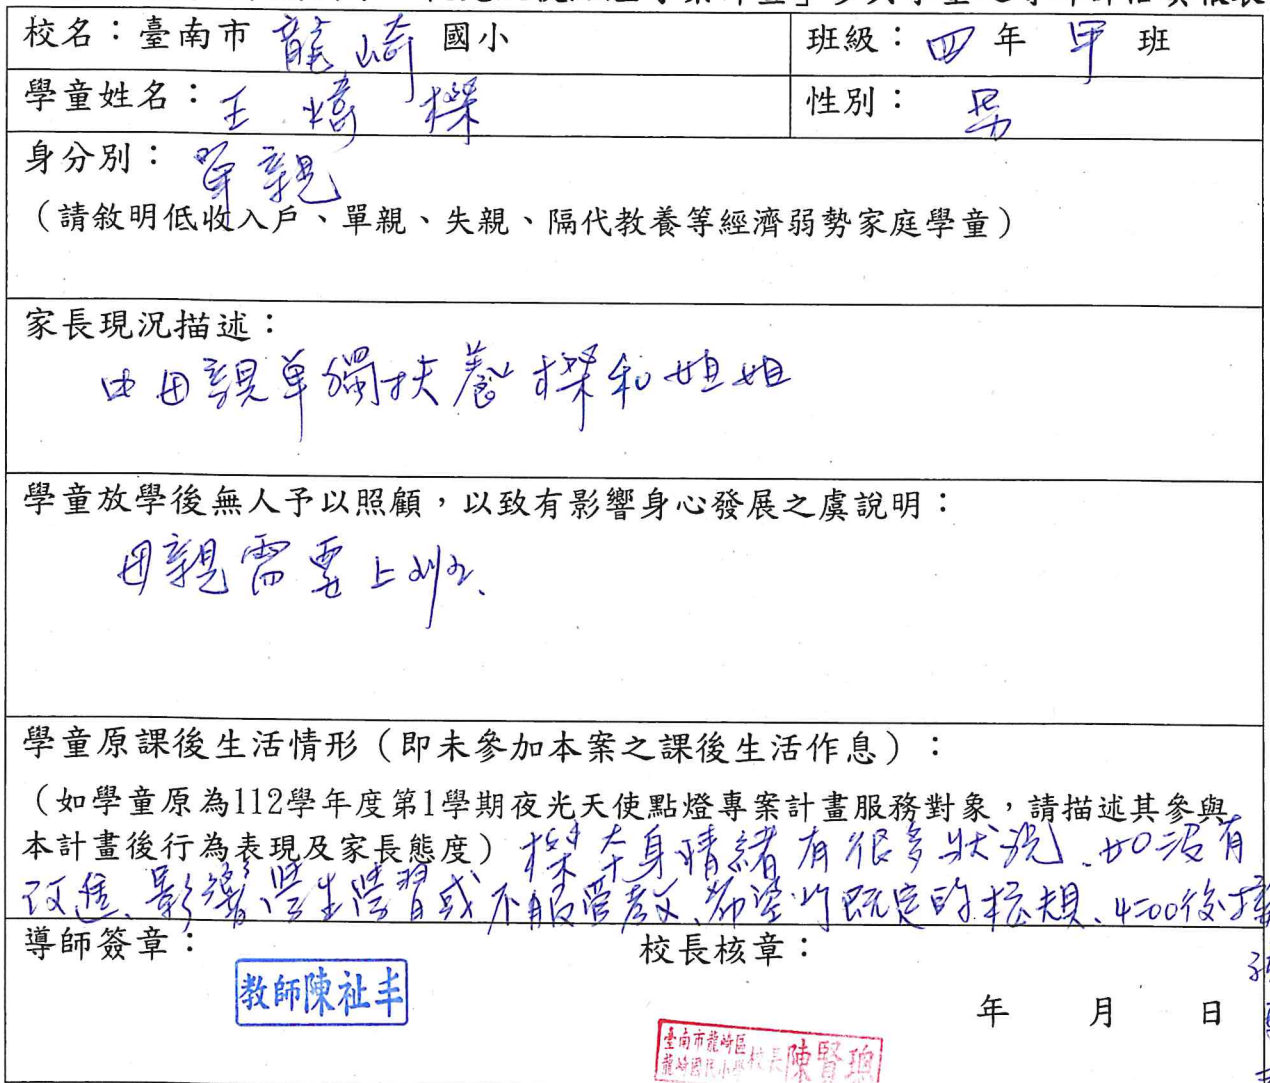 校名：臺南市 龍崎 國小 班級：四 年 甲 班
學童姓名：王 燨 檪 性別：男
身分別：單親
（請敘明低收入戶、單親、失親、隔代教養等經濟弱勢家庭學童）
家長現況描述：
由母親單獨扶養檪和姐姐
學童放學後無人予以照顧，以致有影響身心發展之虞說明：
母親需要上班、
學童原課後生活情形（即未參加本案之課後生活作息）：
（如學童原為112學年度第1學期夜光天使點燈專案計畫服務對象，請描述其參與
本計畫後行為表現及家長態度）檪本身情緒有很多狀況、如沒有
改進、影響學生學習或不服管教、希望以既定的校規、4:00後
導師簽章： 校長核章：
教師陳祉丰
年 月 日
臺南市龍崎區
龍崎國民小學 校長 陳賢